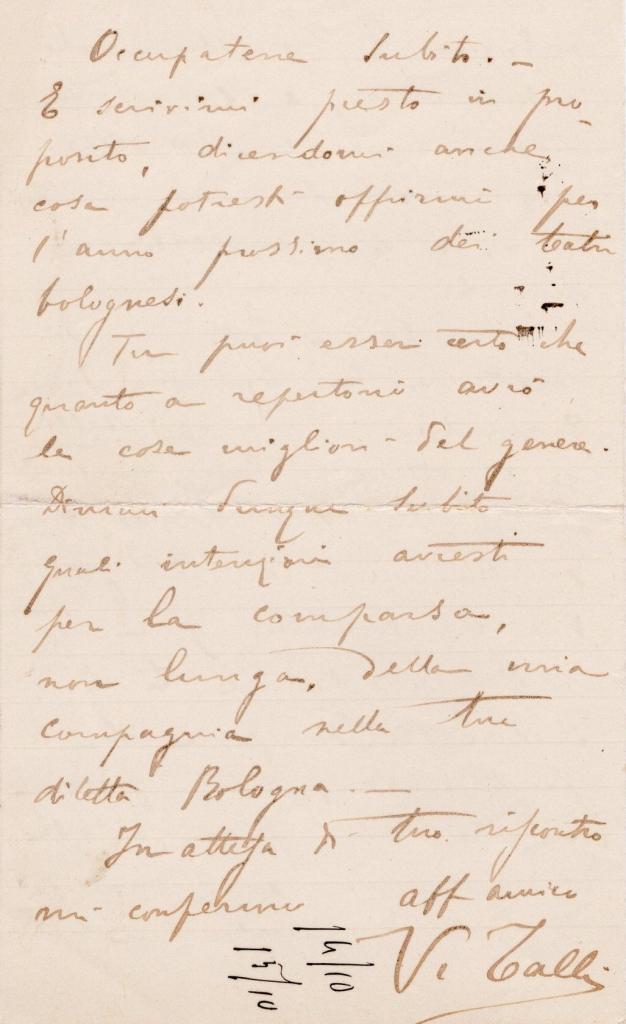 Occupatene subito. —
E scrivimi presto in pro-
posito, dicendomi anche,
cosa potresti offrirmi per
l'anno prossimo dei teatri
bolognesi.
Tu puoi esser certo che
quanto a repertorio avrò
le cose migliori del genere.
Dimmi dunque subito
quali intenzioni avresti
per la comparsa,
non lunga, della mia
compagnia nella tua
diletta Bologna. —
In attesa di tuo riscontro
mi confermo aff amico
V. Talli
14/10
15/10